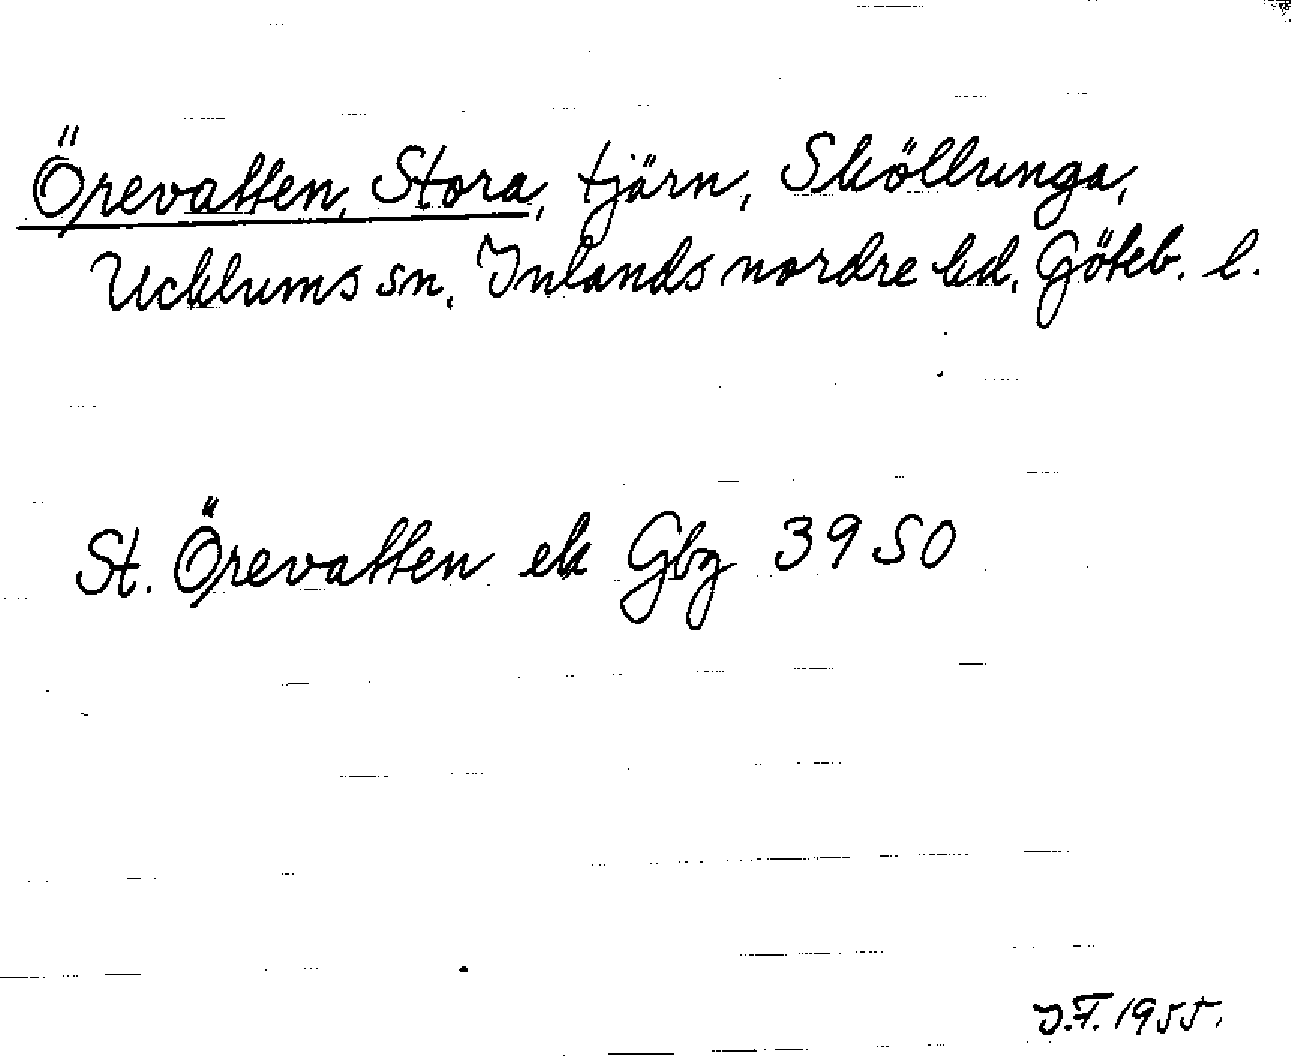 Örevatten, Stora, tjärn, Sköllunga,
Ucklums sn, Inlands nordre hd, Göteb. l.
St. Örevatten ek Gbg 3950
J.F. 1955.